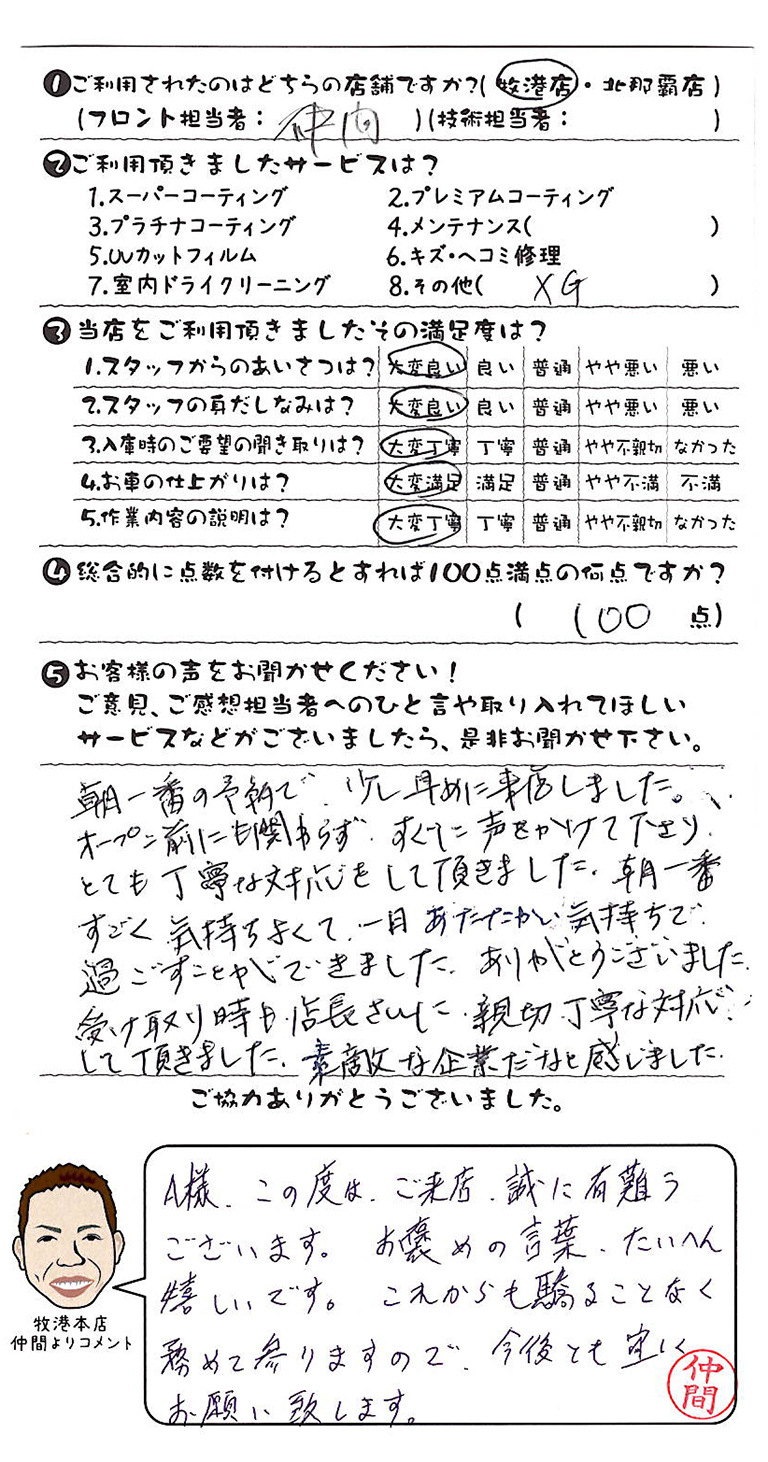 ❶ご利用されたのはどちらの店舗ですか?(牧港店・北那覇店)
(フロント担当者: 仲間 )(技術担当者: )
❷ご利用頂きましたサービスは?
1.スーパーコーティング 2.プレミアムコーティング
3.プラチナコーティング 4.メンテナンス( )
5.UVカットフィルム 6.キズ・ヘコミ修理
7.室内ドライクリーニング 8.その他( XG )
❸当店をご利用頂きましたその満足度は?
1.スタッフからのあいさつは? 大変良い 良い 普通 やや悪い 悪い
2.スタッフの身だしなみは? 大変良い 良い 普通 やや悪い 悪い
3.入庫時のご要望の聞き取りは? 大変丁寧 丁寧 普通 やや不親切 なかった
4.お車の仕上がりは? 大変満足 満足 普通 やや不満 不満
5.作業内容の説明は? 大変丁寧 丁寧 普通 やや不親切 なかった
❹総合的に点数を付けるとすれば100点満点の何点ですか?
( 100 点)
❺お客様の声をお聞かせください!
ご意見、ご感想担当者へのひと言や取り入れてほしい
サービスなどがございましたら、是非お聞かせ下さい。
朝一番の予約で、少し早めに来店しました。
オープン前にも関わらず、すぐに声をかけて下さり、
とても丁寧な対応をして頂きました。朝一番
すごく気持ちよくて、一日あたたかい気持ちで
過ごすことができました。ありがとうございました。
受け取り時も、店長さんに、親切丁寧な対応を
して頂きました。素敵な企業だなと感じました。
ご協力ありがとうございました。
A様、この度は、ご来店、誠に有難う
ございます。お褒めの言葉、たいへん
嬉しいです。これからも驕ることなく
務めて参りますので、今後とも宜しく
お願い致します。
仲間
牧港本店
仲間よりコメント